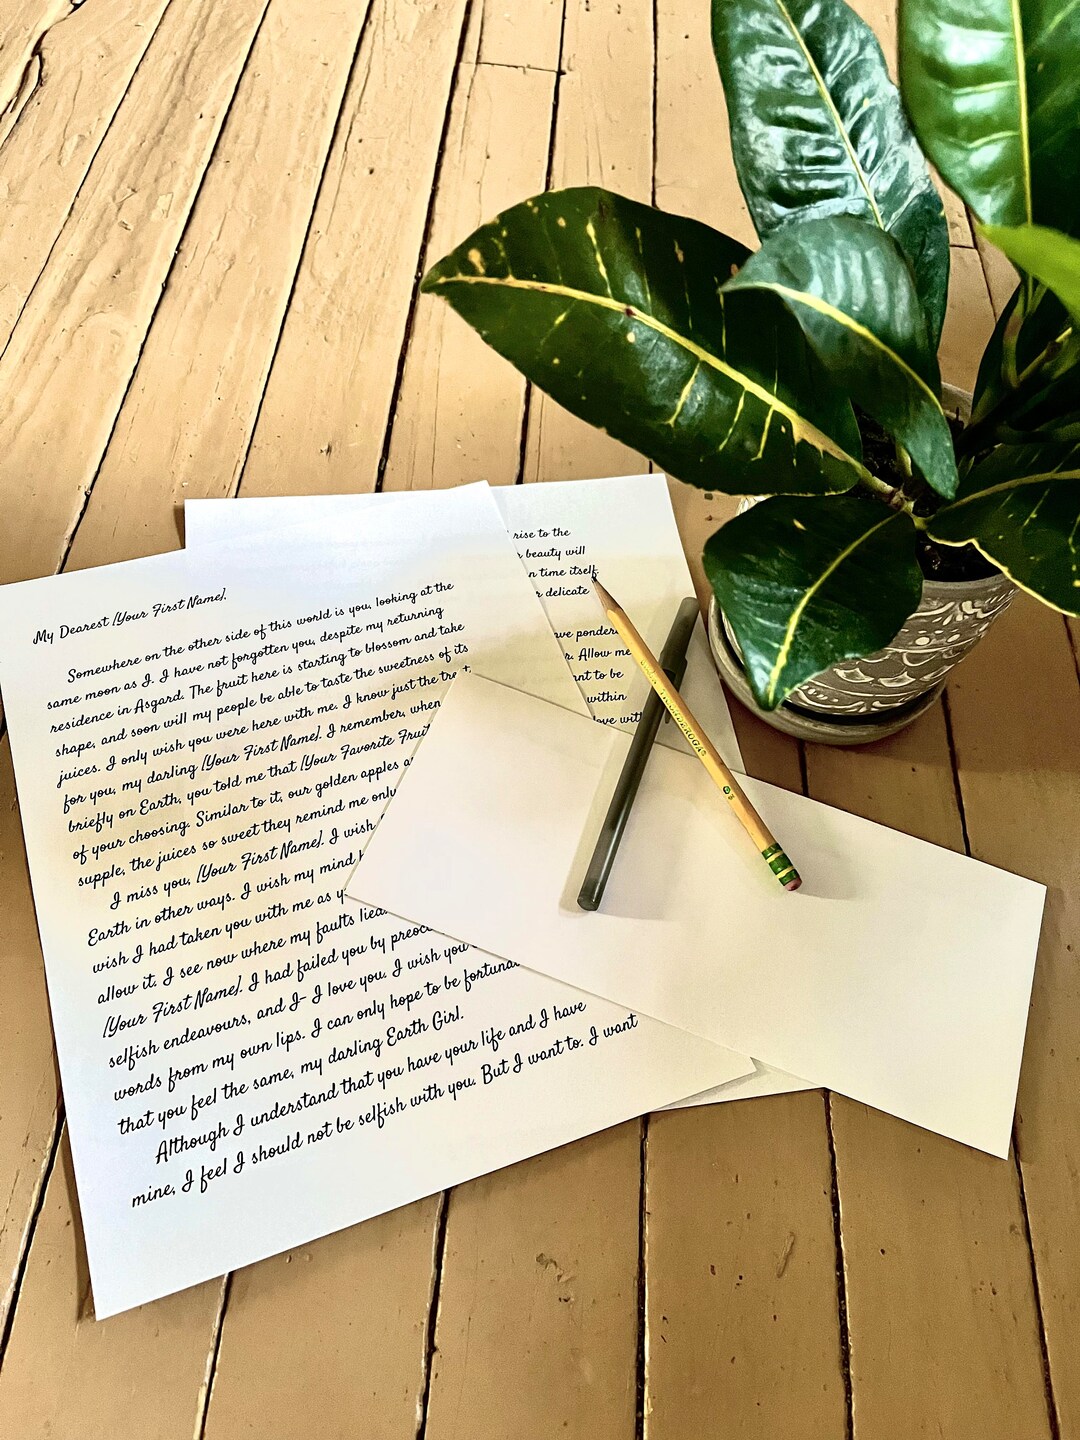 My Dearest [Your First Name],
Somewhere on the other side of this world is you, looking at the
same moon as I. I have not forgotten you, despite my returning
residence in Asgard. The fruit here is starting to blossom and take
shape, and soon will my people be able to taste the sweetness of its
juices. I only wish you were here with me. I know just the
for you, my darling [Your First Name]. I remember, when
briefly on Earth, you told me that [Your Favorite
of your choosing. Similar to it, our golden apples
supple, the juices so sweet they remind me only
I miss you, [Your First Name]. I wish
Earth in other ways. I wish my mind
wish I had taken you with me as
allow it. I see now where my faults
[Your First Name]. I had failed you by
selfish endeavours, and I- I love you. I wish you
words from my own lips. I can only hope to be
that you feel the same, my darling Earth Girl.
Although I understand that you have your life and I have
mine, I feel I should not be selfish with you. But I want to. I want
rise to the
beauty will
time itself.
delicate
Allow me
to be
within
TICONDEROGA